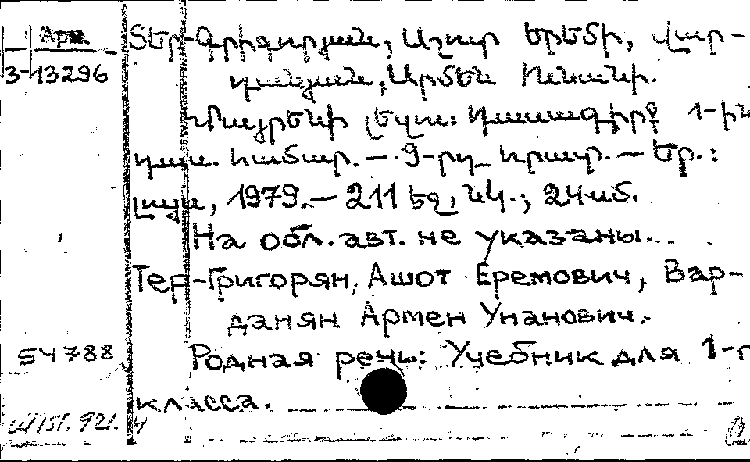 Арм
3-13296
Տեր-Գրիգորյան, Աշոտ Երեմի, Վար-
դանյան, Արմեն Ունանի.
Մայրենի լեզու: Դասագիրք 1-ին
դաս. համար. — 9-րդ հրատ. — Եր.:
Լույս, 1979. — 211 էջ, նկ.; 24սմ.
На обл. авт. не указаны.
Тер-Григорян, Ашот Еремович, Вар-
данян Армен Унанович.
54788
Родная речь: Учебник для 1-г
класса.